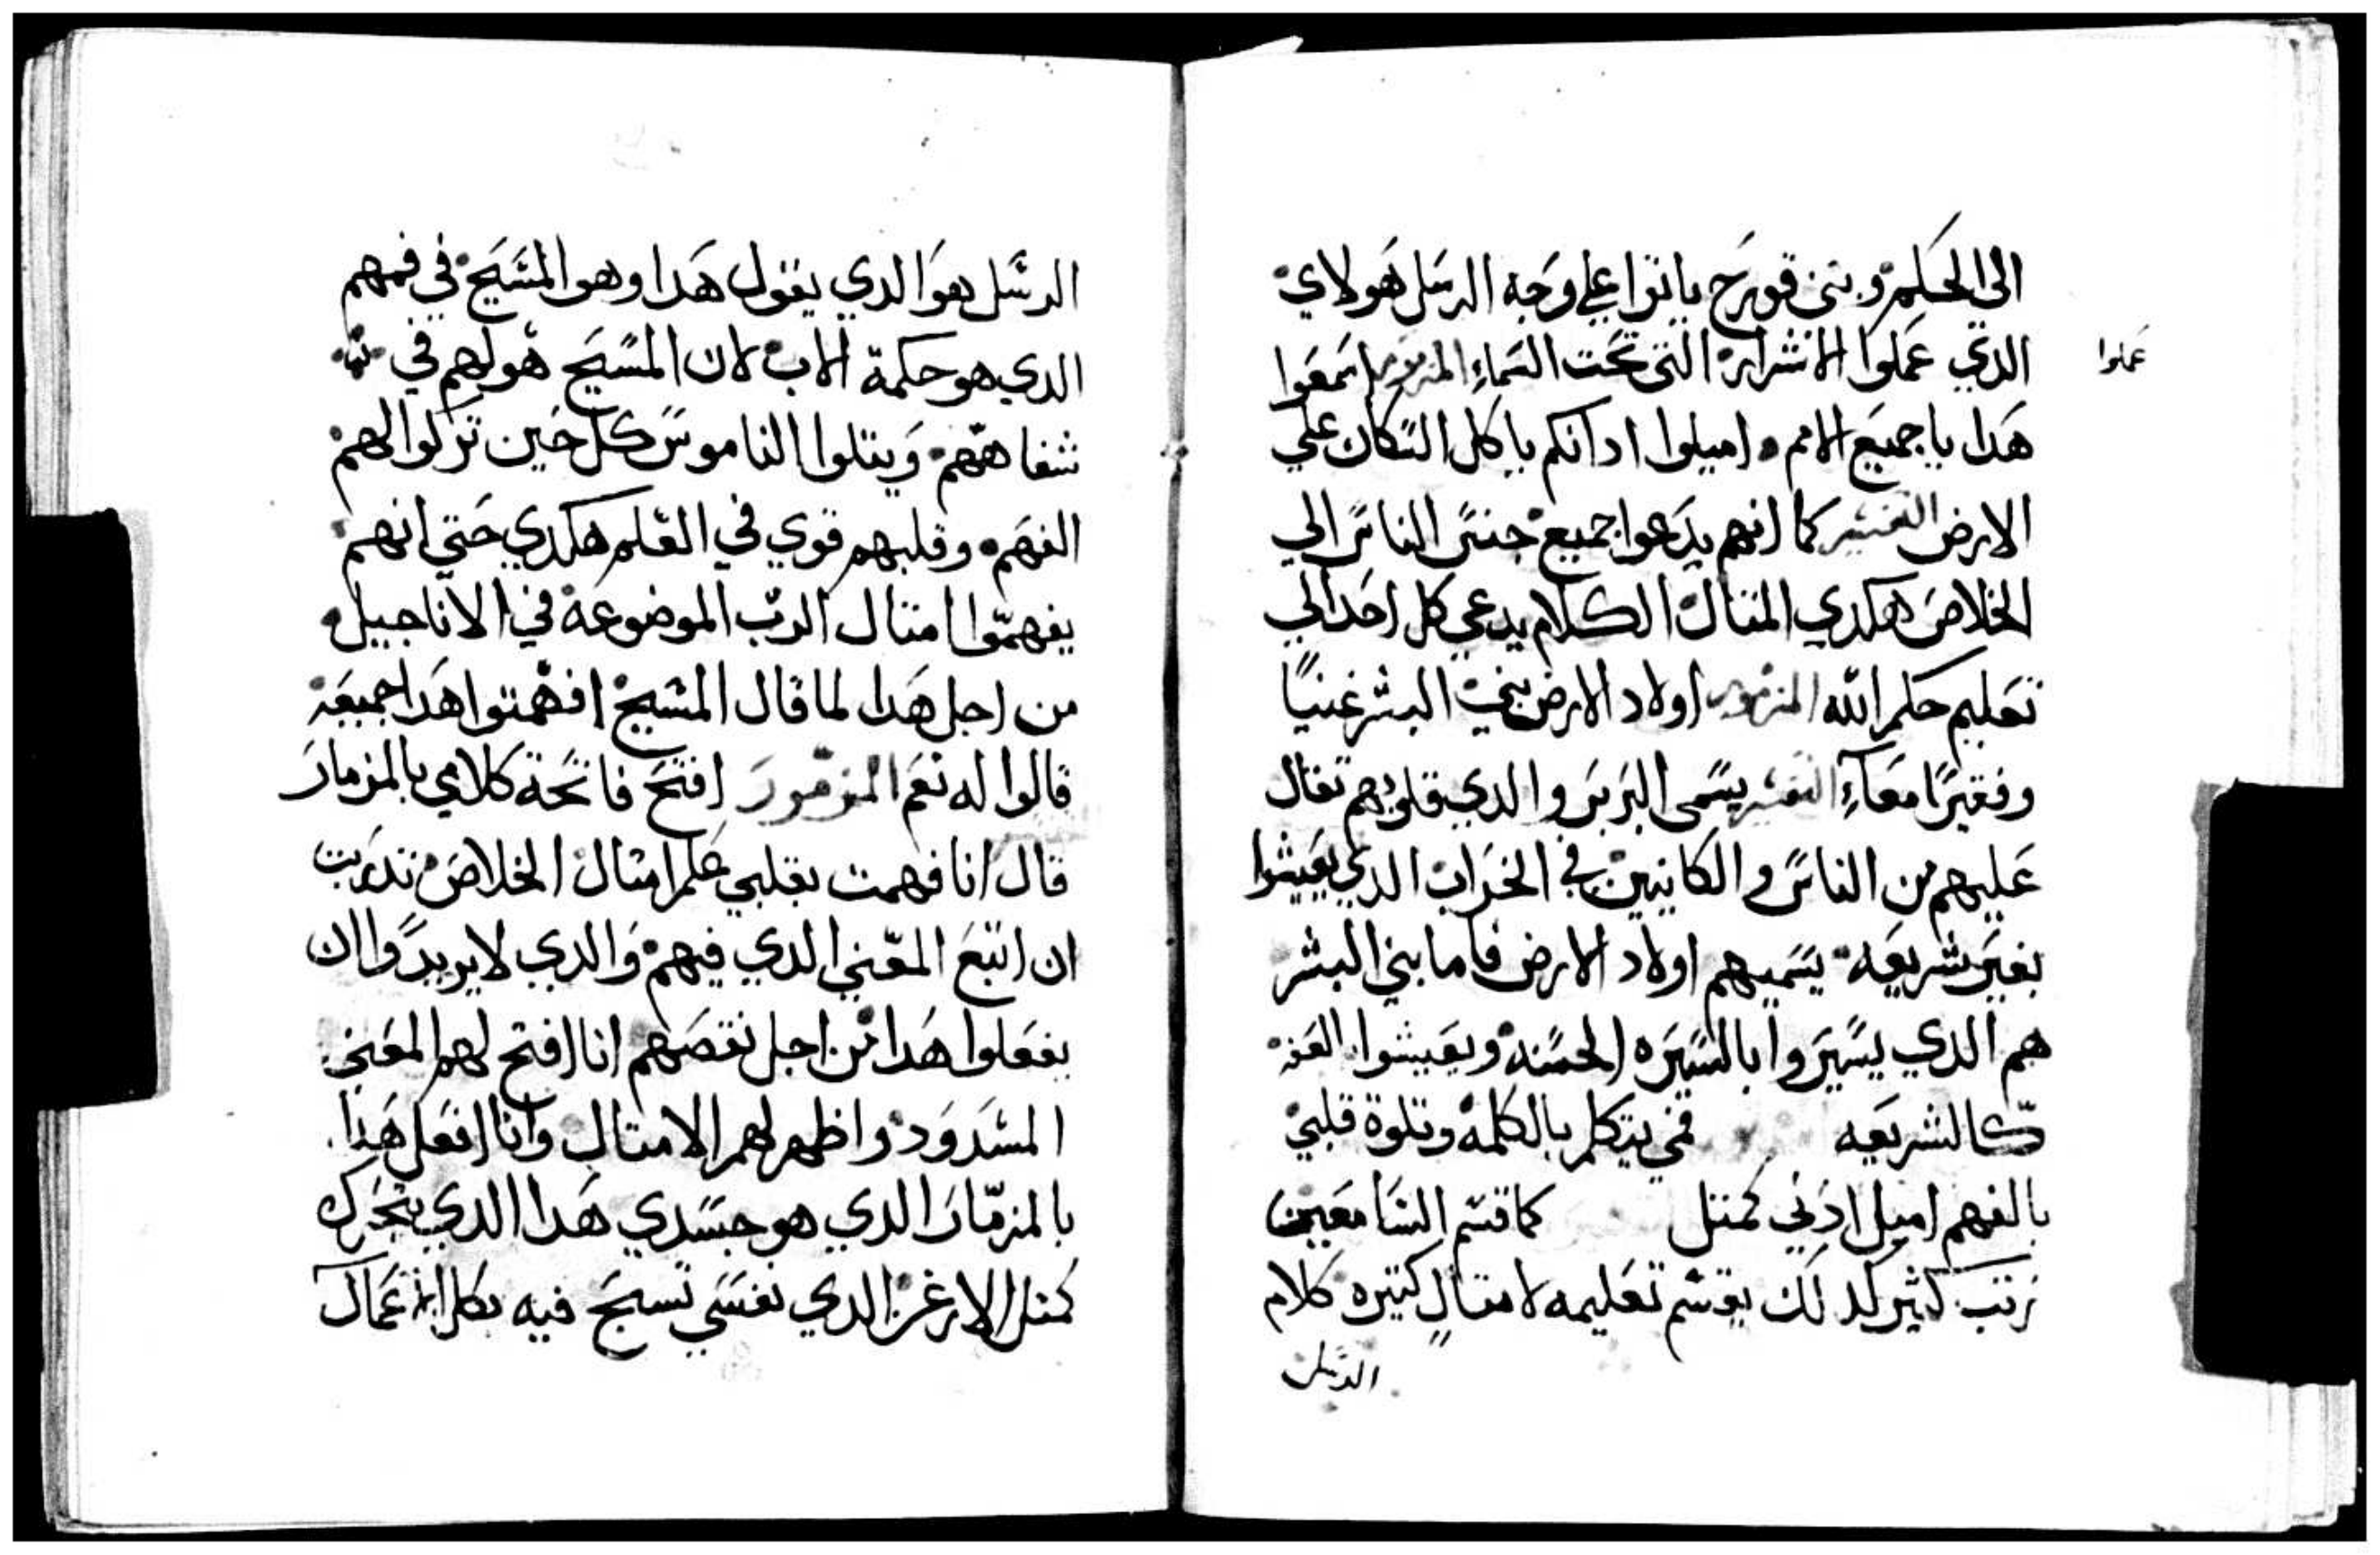 الى الحكمه وبني قورح ياتوا على وجه الرسل هولاي
الدي عملوا الاشرار التي تحت السماء المزمور اسمعوا
عملوا
هدا يا جميع الامم واميلوا ادانكم يا كل السكان علي
الارض التفسير كما انهم يدعوا جميع جنس الناس الي
الخلاص هكدي المتال الكلام يدعي كل احد الي
تعليم حكم الله المزمور اولاد الارض بني البشر غنيا
وفقيرا معاء التفسير يسمى البربر والدي قلوبهم تقال
عليهم من الناس والكاينين في الخراب الدي يعيشوا
بغير شريعه يسميهم اولاد الارض فاما بني البشر
هم الدي يسيروا بالسيره الحسنه ويعيشوا
كالشريعه فمي يتكلم بالكلمه وتلوة قلبي
بالفهم اميل ادني كمتل كما قسم السامعين
رتب كثير كدلك يقسم تعليمه لامتال كتيره كلام
الرسل
الرسل هو الدي يقول هدا وهو المسيح في فمهم
الدي هو حكمة الاب لان المسيح هو لهم في
شفاههم ويتلوا الناموس كل حين تركوا لهم
الفهم وقلبهم قوي في العلم هكدي حتي انهم
يفهموا امتال الرب الموضوعة في الاناجيل
من اجل هدا لما قال المسيح افهمتوا هدا جميعه
قالوا له نعم المزمور افتح فاتحة كلامي بالمزمار
قال انا فهمت بقلبي علم امتال الخلاص
ان اتبع المعني الدي فيهم والدي لا يريدوا ان
يفعلوا هدا من اجل نقصهم انا افتح لهم المعني
المسدود واظهر لهم الامتال وانا افعل هدا
بالمزمار الدي هو جسدي هدا الدي يتحرك
كمتل الارغن الدي نفسي تسبح فيه بكل الاعمال